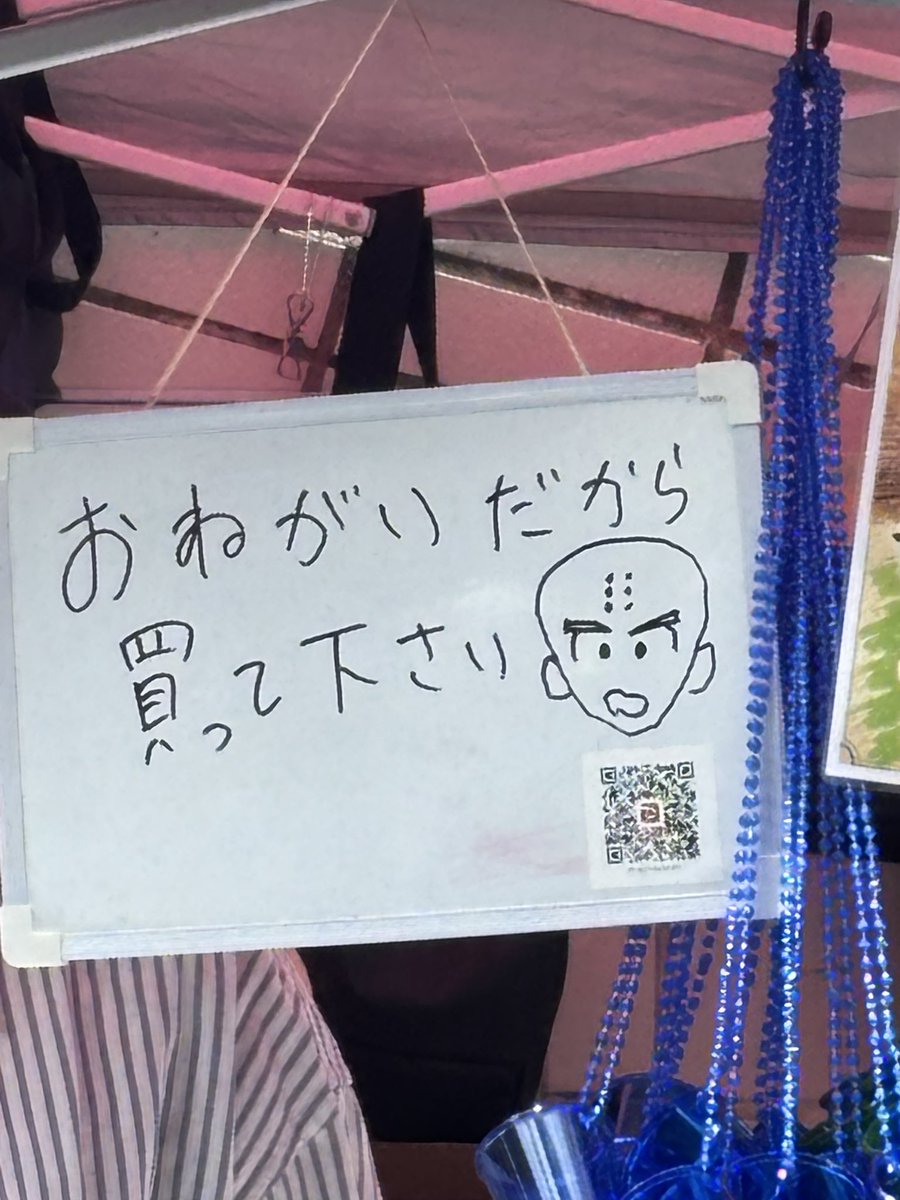 おねがいだから
買って下さい